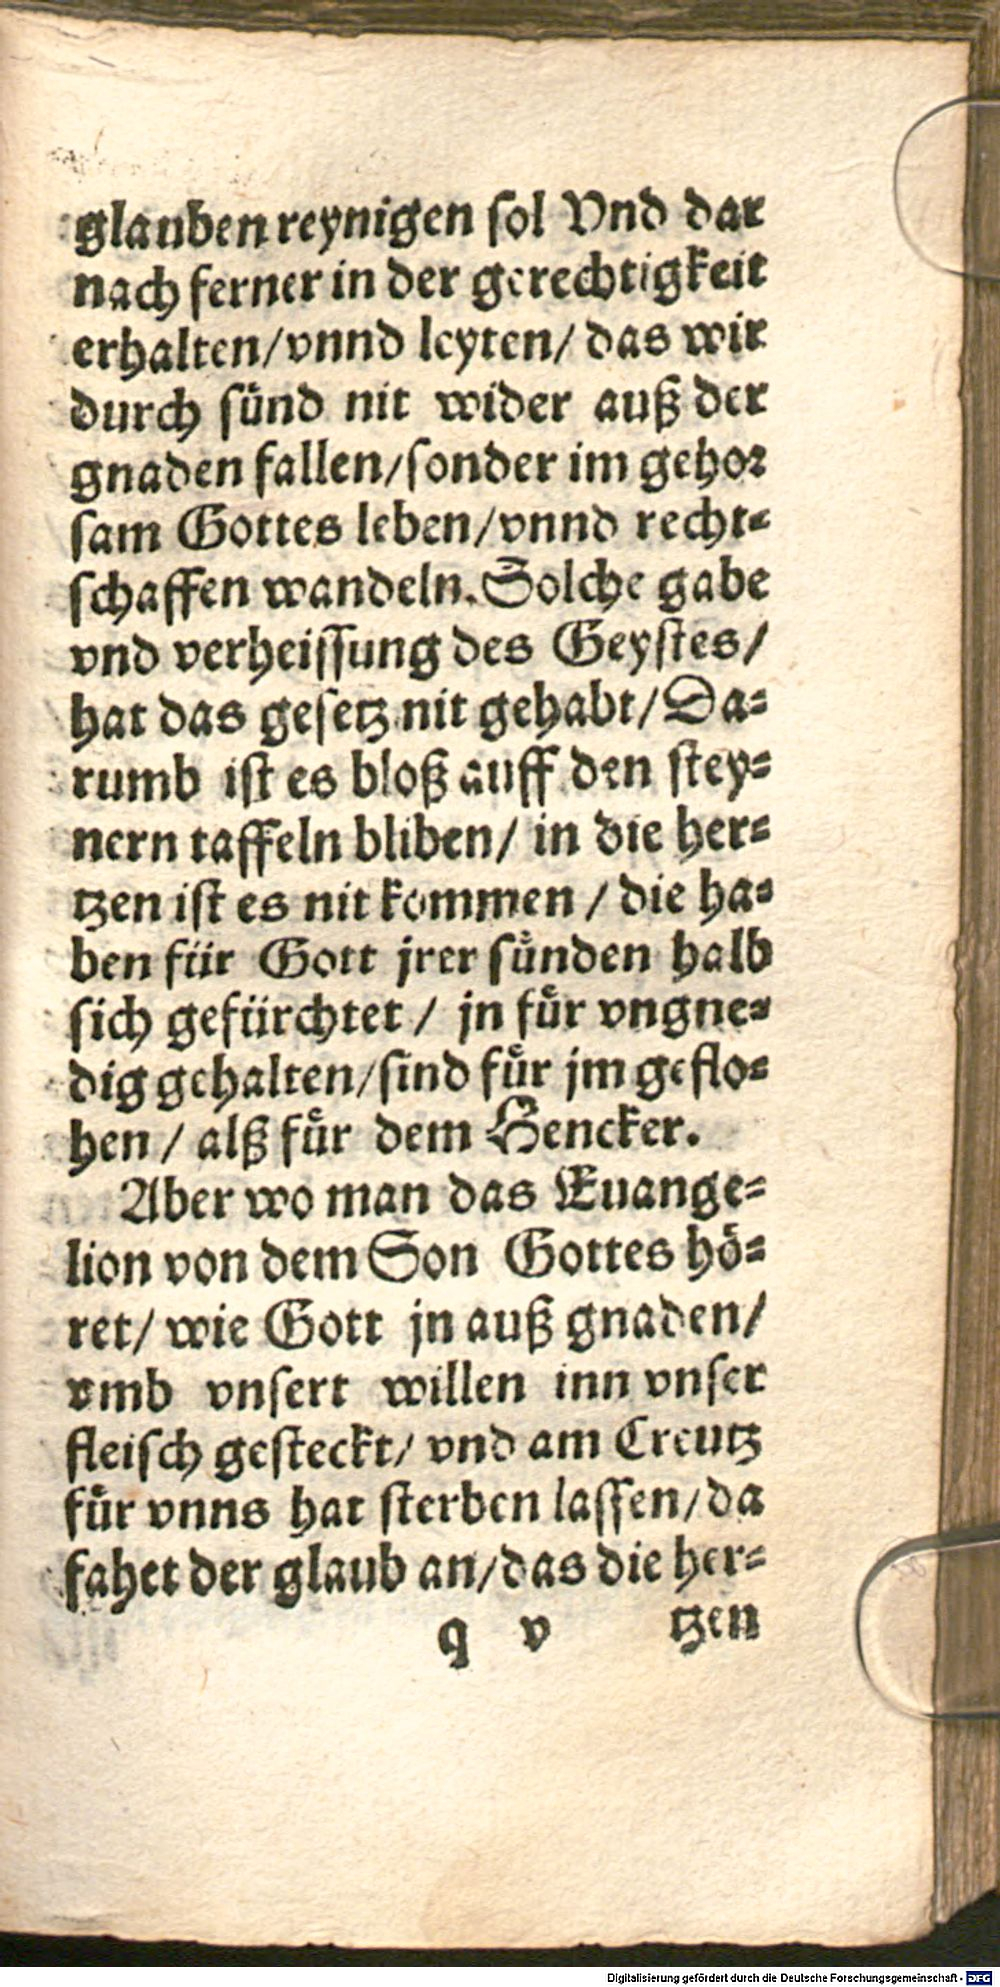 glauben reynigen sol Vnd dar
nach ferner in der gerechtigkeit
erhalten/vnnd leyten/ das wir
durch sünd nit wider auß der
gnaden fallen/sonder im gehor
sam Gottes leben/vnnd recht=
schaffen wandeln. Solche gabe
vnd verheissung des Geystes/
hat das gesetz nit gehabt/Da=
rumb ist es bloß auff den stey=
nern taffeln bliben/ in die her=
tzen ist es nit kommen / die ha=
ben für Gott jrer sünden halb
sich gefürchtet / jn für vngne=
dig gehalten/sind für jm geflo=
hen / alß für dem Hencker.
Aber wo man das Euange=
lion von dem Son Gottes hö=
ret/ wie Gott jn auß gnaden/
vmb vnsert willen inn vnser
fleisch gesteckt/ vnd am Creutz
für vnns hat sterben lassen/da
fahet der glaub an/das die her=
q v tzen
Digitalisierung gefördert durch die Deutsche Forschungsgemeinschaft - DFG